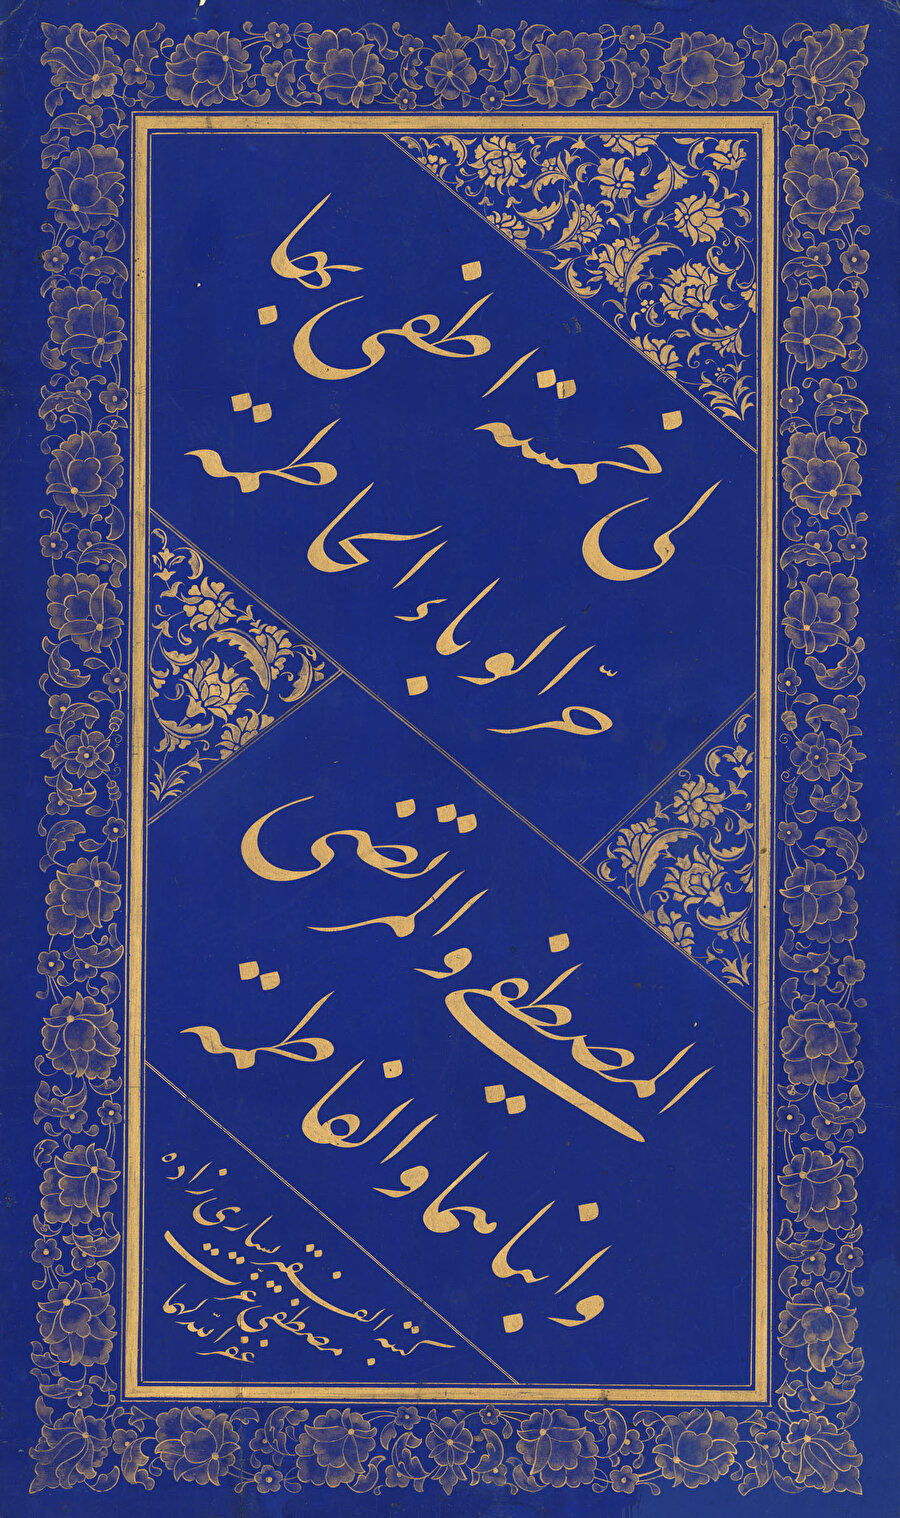 لی خمسة اطفی بها
حرّ الوباء الحاطمة
المصطفی والمرتضی
وابناهما والفاطمة
کتبه الفقیر یساری زاده
مصطفی عزت
غفر الله لهما